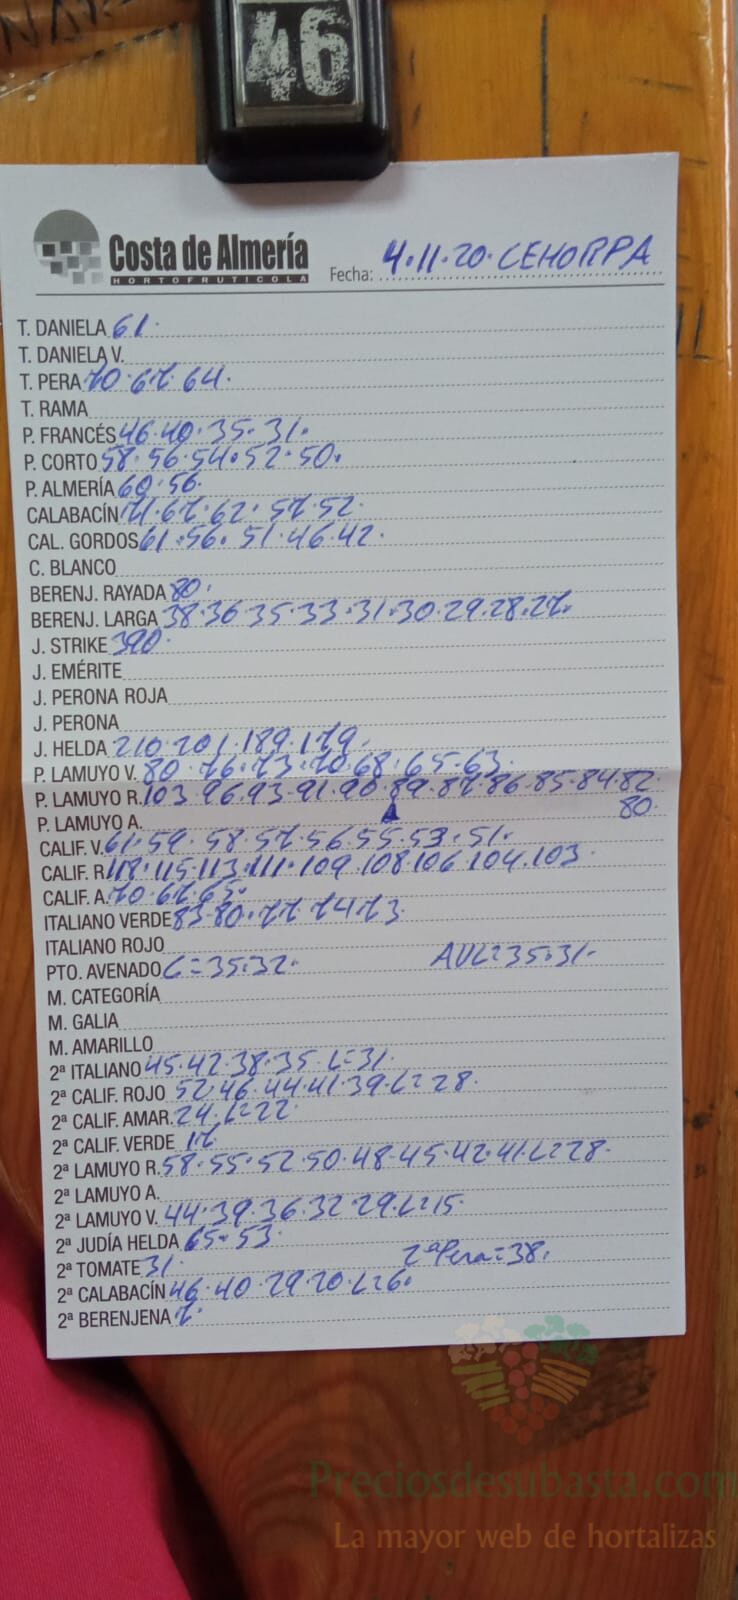 46
Costa de Almería
HORTOFRUTICOLA
Fecha: 4.11.20. CEHORPA
T. DANIELA 61.
T. DANIELA V.
T. PERA 70.67.64.
T. RAMA
P. FRANCÉS 46.40.35.31.
P. CORTO 58.56.54.52.50.
P. ALMERÍA 60.56.
CALABACÍN 71.67.62.57.52.
CAL. GORDOS 61.56.51.46.42.
C. BLANCO
BERENJ. RAYADA 80.
BERENJ. LARGA 38.36.35.33.31.30.29.28.27.
J. STRIKE 390.
J. EMÉRITE
J. PERONA ROJA
J. PERONA
J. HELDA 210.201.189.179.
P. LAMUYO V. 80.76.73.70.68.65.63.
P. LAMUYO R. 103.96.93.91.90.89.87.86.85.84.82.
80
P. LAMUYO A.
CALIF. V. 61.59.58.57.56.55.53.51.
CALIF. R. 118.115.113.111.109.108.106.104.103.
CALIF. A. 70.67.65.
ITALIANO VERDE 83.80.77.74.73.
ITALIANO ROJO
PTO. AVENADO C=35.32. AVL=35.31.
M. CATEGORÍA
M. GALIA
M. AMARILLO
2ª ITALIANO 45.42.38.35.L=31.
2ª CALIF. ROJO 52.46.44.41.39.L=28.
2ª CALIF. AMAR. 24.L=22.
2ª CALIF. VERDE 17
2ª LAMUYO R. 58.55.52.50.48.45.42.41.L=28.
2ª LAMUYO A.
2ª LAMUYO V. 44.39.36.32.29.L=15.
2ª JUDÍA HELDA 65.53.
2ª TOMATE 31. 2ªPera=38.
2ª CALABACÍN 46.40.29.20.L=6.
2ª BERENJENA 7.
Preciosdesubasta.com
La mayor web de hortalizas